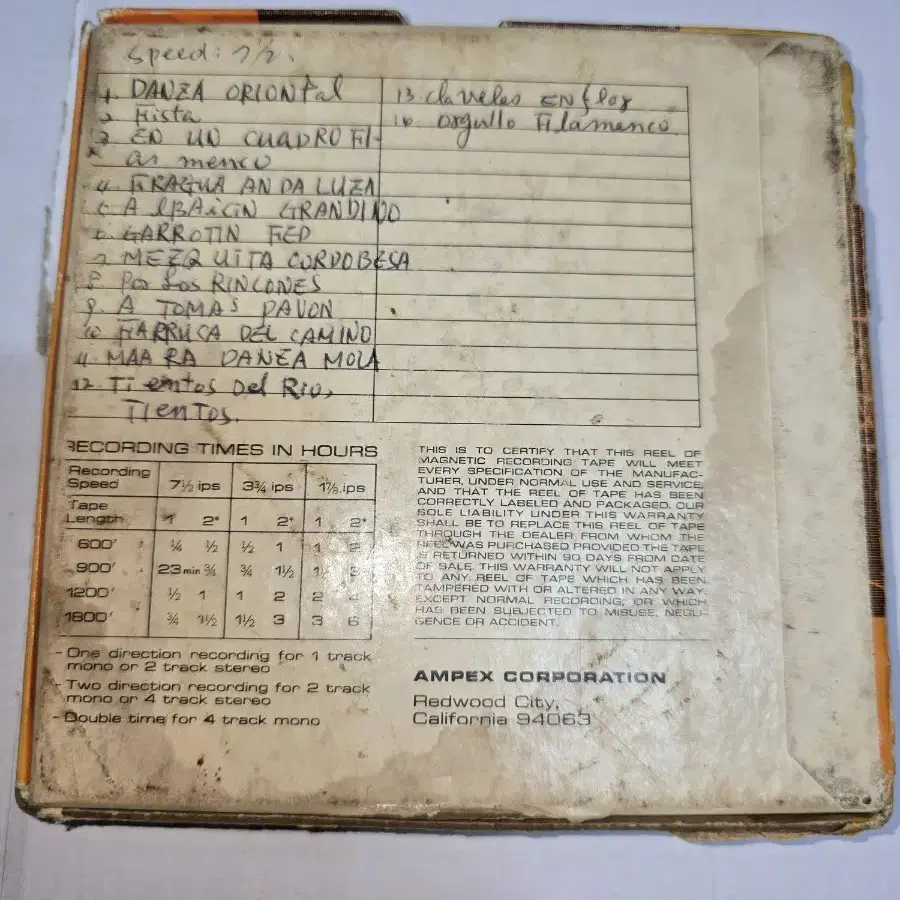 Speed: 7 1/2.
1. DANZA ORIONTAL
2 Fista
3 EN UN CUADRO Fl-
as menco
4. FRAGUA ANDALUZA
5 ALBAICIN GRANDINO
6. GARROTIN FED
7 MEZQUITA CORDOBESA
8 Por Los RINCONES
9. A TOMAS PAVON
10 FARRUCA DEL CAMINO
11 MAARA DANZA MOLA
12. Tientos Del Rio,
Tientos.
13. claveles EN flor
14. orgullo Filamenco
RECORDING TIMES IN HOURS
Recording Speed 7½ ips 3¾ ips 1⅞ ips
Tape Length 1 2* 1 2* 1 2*
600' ¼ ½ ½ 1 1 2
900' 23 min ¾ ¾ 1½ 1½ 3
1200' ½ 1 1 2 2 4
1800' ¾ 1½ 1½ 3 3 6
- One direction recording for 1 track
mono or 2 track stereo
- Two direction recording for 2 track
mono or 4 track stereo
- Double time for 4 track mono
THIS IS TO CERTIFY THAT THIS REEL OF
MAGNETIC RECORDING TAPE WILL MEET
EVERY SPECIFICATION OF THE MANUFAC-
TURER, UNDER NORMAL USE AND SERVICE,
AND THAT THE REEL OF TAPE HAS BEEN
CORRECTLY LABELED AND PACKAGED. OUR
SOLE LIABILITY UNDER THIS WARRANTY
SHALL BE TO REPLACE THIS REEL OF TAPE
THROUGH THE DEALER FROM WHOM THE
REEL WAS PURCHASED PROVIDED THE TAPE
IS RETURNED WITHIN 90 DAYS FROM DATE
OF SALE. THIS WARRANTY WILL NOT APPLY
TO ANY REEL OF TAPE WHICH HAS BEEN
TAMPERED WITH OR ALTERED IN ANY WAY,
EXCEPT NORMAL RECORDING, OR WHICH
HAS BEEN SUBJECTED TO MISUSE, NEGLI-
GENCE OR ACCIDENT.
AMPEX CORPORATION
Redwood City,
California 94063